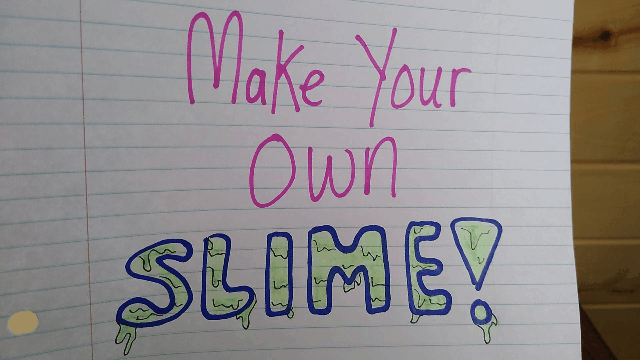 Make Your
Own
SLIME!